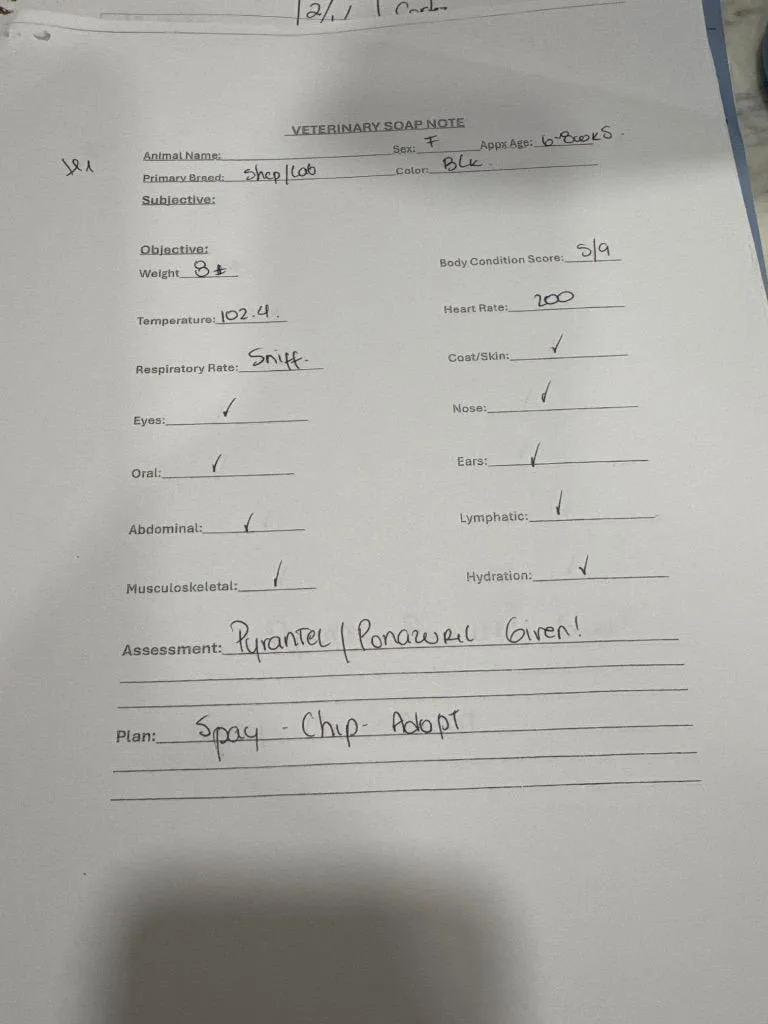 12/1
VETERINARY SOAP NOTE
Animal Name: Sex: F Appx Age: 6-8weeks.
Primary Breed: Shep/Lab Color: BLK.
Subjective:
Objective:
Weight 8# Body Condition Score: 5/9
Temperature: 102.4. Heart Rate: 200
Respiratory Rate: Sniff. Coat/Skin: ✓
Eyes: ✓ Nose: ✓
Oral: ✓ Ears: ✓
Abdominal: ✓ Lymphatic: ✓
Musculoskeletal: ✓ Hydration: ✓
Assessment: Pyrantel / Ponazuril Given!
Plan: Spay - Chip - Adopt